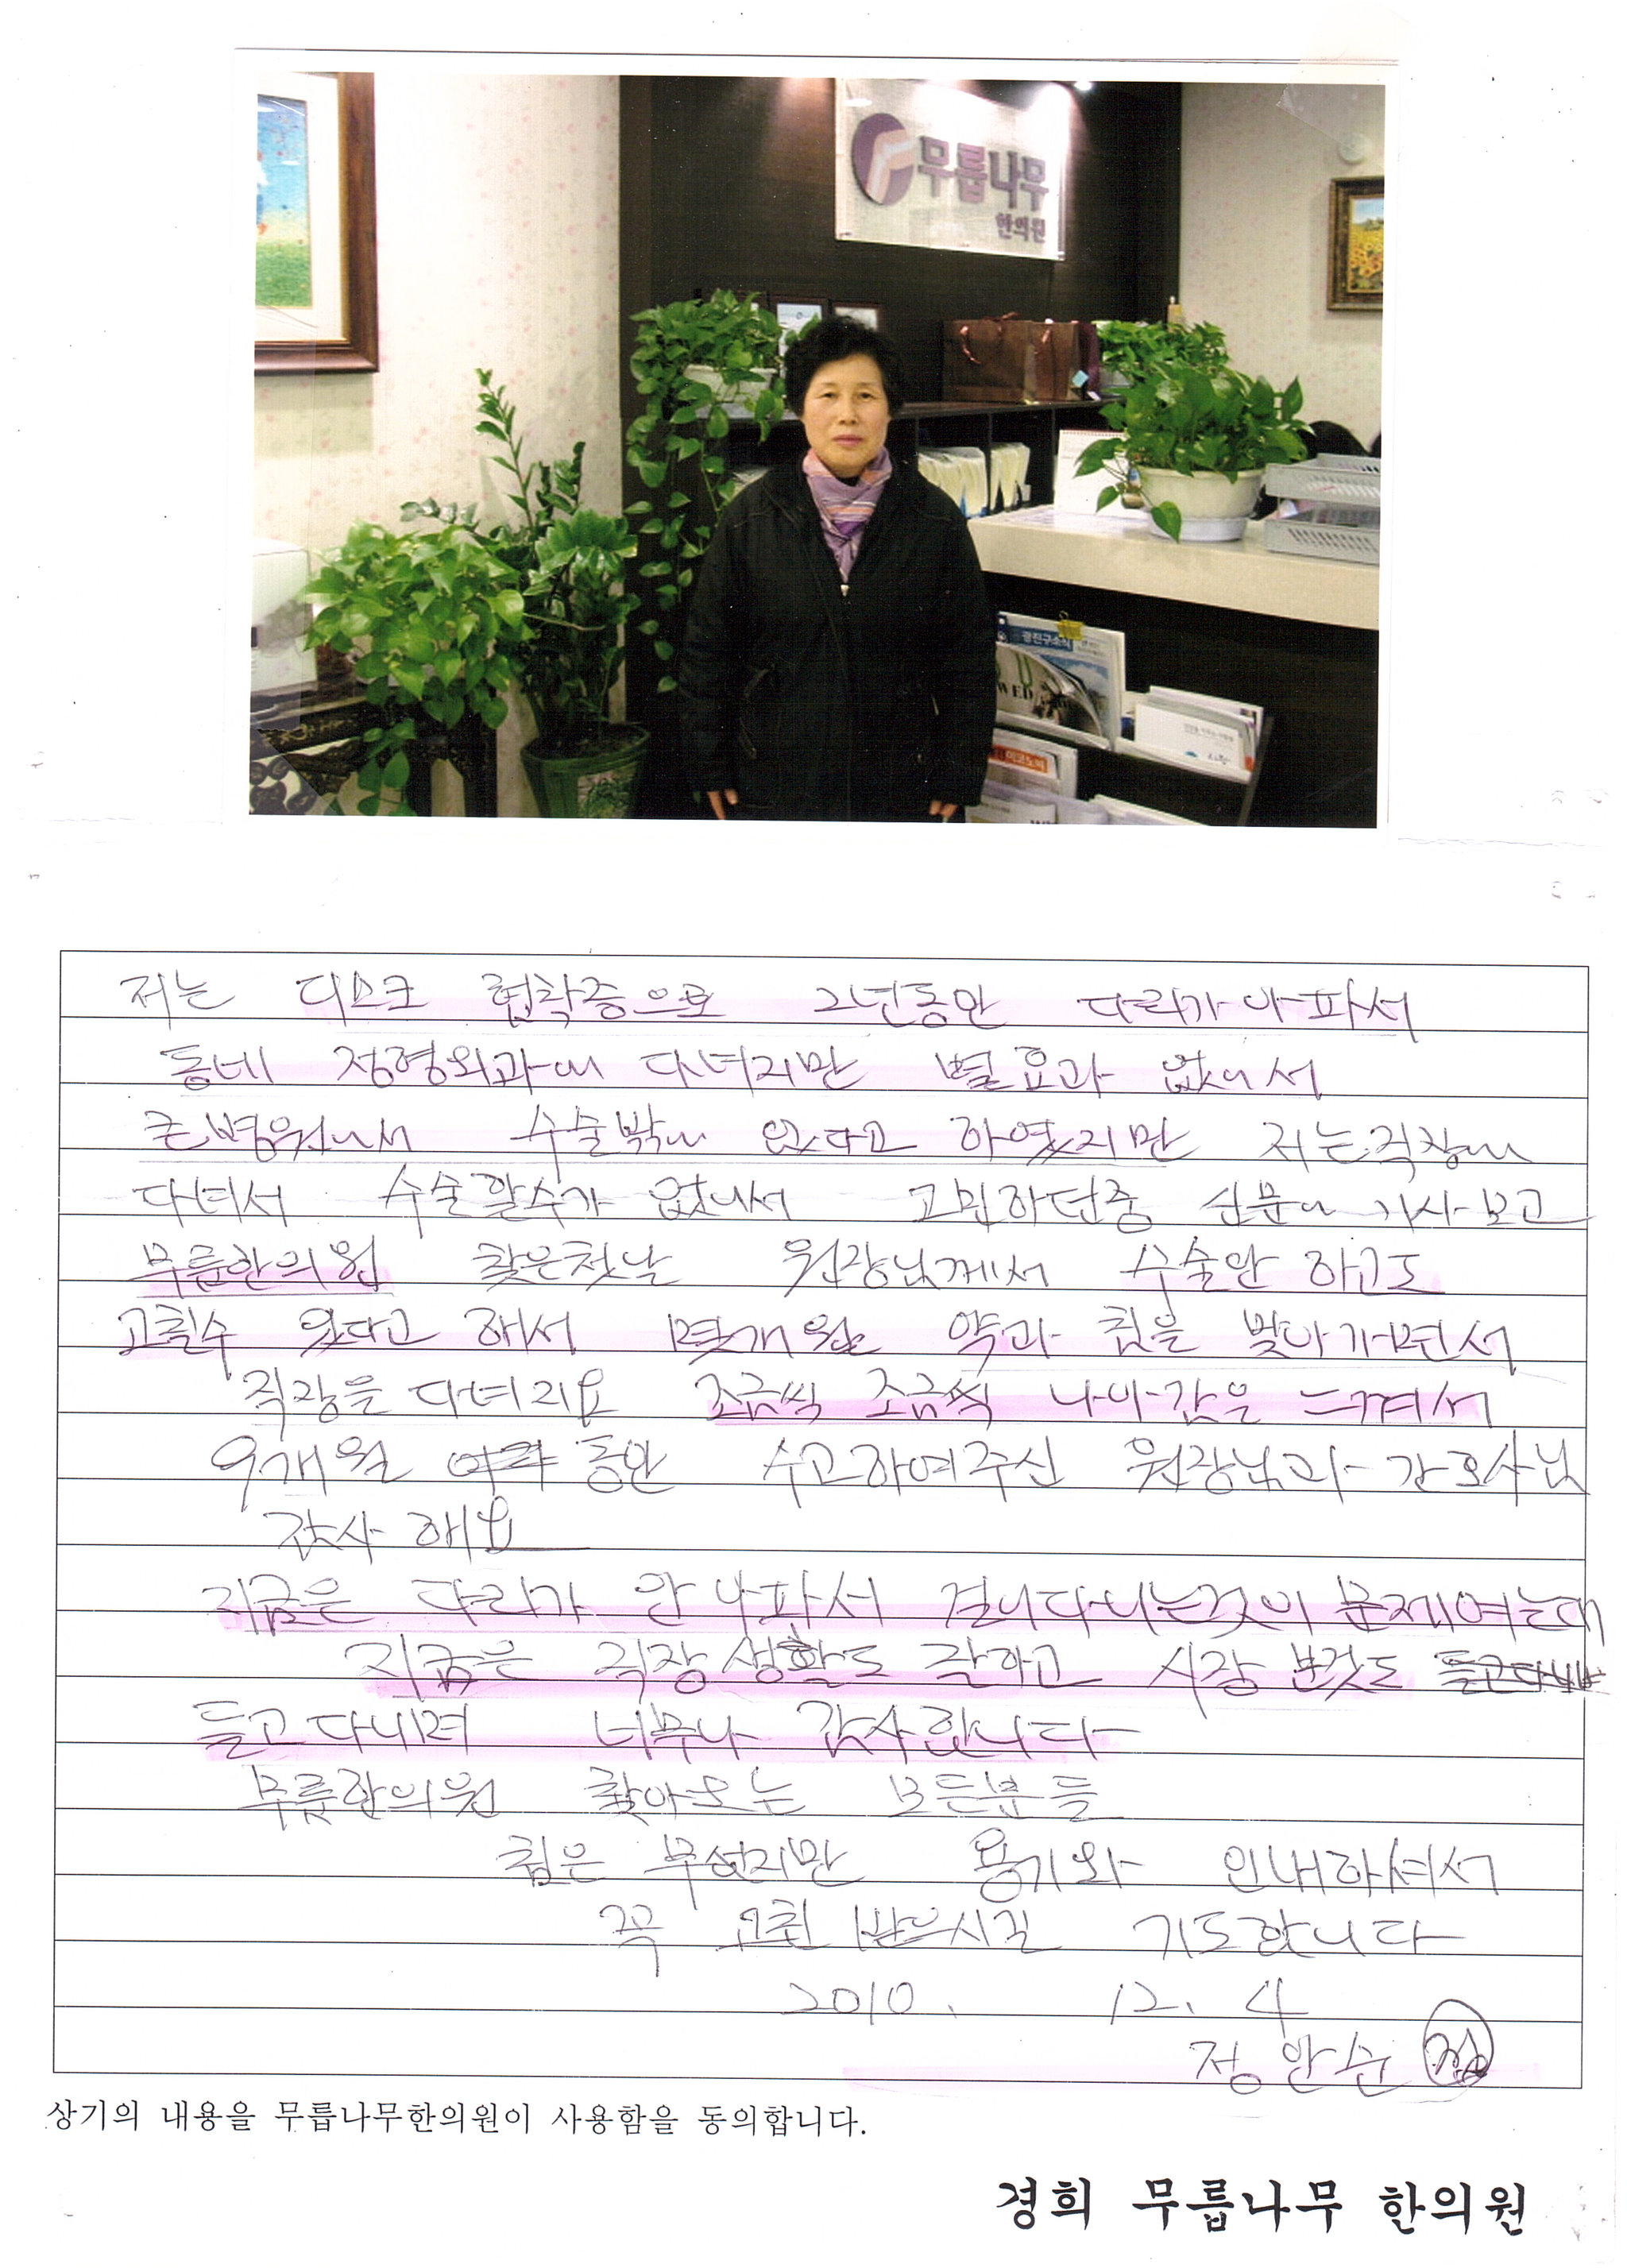 무릎나무
한의원
광진구소식
WED
이코노미
저는 디스크 협착증으로 2년동안 다리가 아파서
동네 정형외과에 다녀지만 별 효과 없어서
큰병원에서 수술밖에 없다고 하였지만 저는 직장에
다녀서 수술할수가 없어서 고민하던중 신문에 기사 보고
무릎한의원 찾은첫날 원장님께서 수술안 하고도
고칠수 있다고 해서 몇개월 약과 침을 맞아가면서
직장을 다녀지요 조금씩 조금씩 나아감을 느껴서
9개월 동안 수고하여주신 원장님과 간호사님
감사 해요
지금은 다리가 안 아파서 걸어다니는것이 문제여는데
지금은 직장 생활도 잘하고 시장 본것도 들고다니며
들고다니며 너무나 감사합니다
무릎한의원 찾아오는 모든분들
침은 무섭지만 용기와 인내하셔서
꼭 고침 받으시길 기도합니다
2010. 12. 4
정 안순 정
상기의 내용을 무릎나무한의원이 사용함을 동의합니다.
경희 무릎나무 한의원